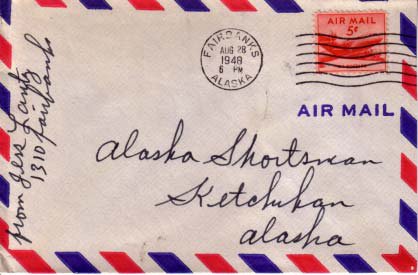 FAIRBANKS
AUG 28
1948
6 PM
ALASKA
AIR MAIL
5¢
AIR MAIL
from Jess Lantz
1310 Fairbanks
Alaska Shortsman
Ketchikan
Alaska